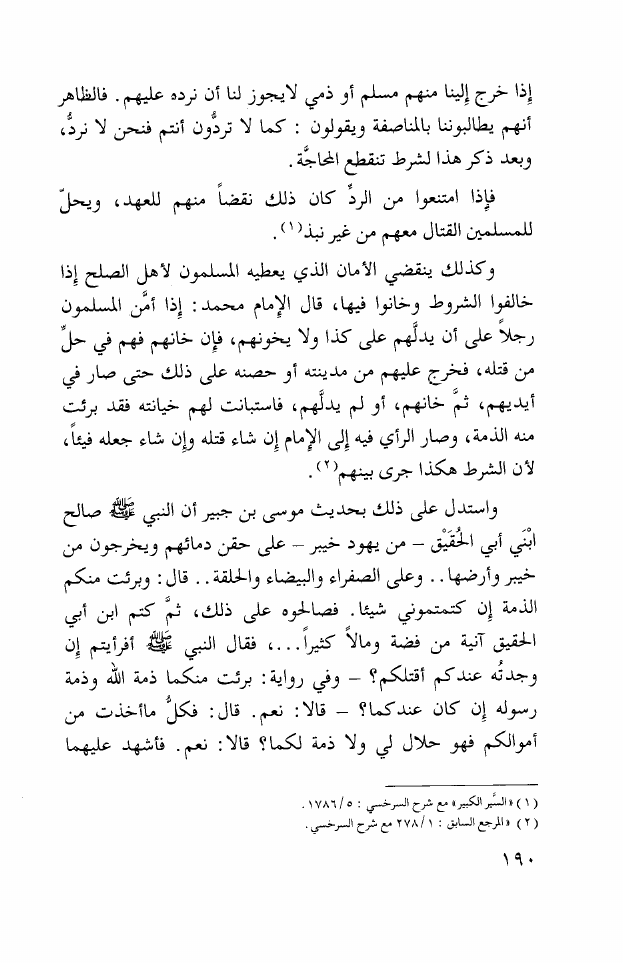 إذا خرج إلينا منهم مسلم أو ذمي لايجوز لنا أن نرده عليهم. فالظاهر
أنهم يطالبوننا بالمناصفة ويقولون : كما لا تردُّون أنتم فنحن لا نردُّ،
وبعد ذكر هذا لشرط تنقطع المحاجَّة.
فإذا امتنعوا من الردِّ كان ذلك نقضاً منهم للعهد، ويحلّ
للمسلمين القتال معهم من غير نبذ(١).
وكذلك ينقضي الأمان الذي يعطيه المسلمون لأهل الصلح إذا
خالفوا الشروط وخانوا فيها، قال الإمام محمد: إذا أمَّن المسلمون
رجلاً على أن يدلَّهم على كذا ولا يخونهم، فإن خانهم فهم في حلٍّ
من قتله، فخرج عليهم من مدينته أو حصنه على ذلك حتى صار في
أيديهم، ثمَّ خانهم، أو لم يدلَّهم، فاستبانت لهم خيانته فقد برئت
منه الذمة، وصار الرأي فيه إلى الإمام إن شاء قتله وإن شاء جعله فيئاً،
لأن الشرط هكذا جرى بينهم(٢).
واستدل على ذلك بحديث موسى بن جبير أن النبي ﷺ صالح
ابْنَي أبي الحُقَيْق – من يهود خيبر – على حقن دمائهم ويخرجون من
خيبر وأرضها.. وعلى الصفراء والبيضاء والحلقة.. قال: وبرئت منكم
الذمة إن كتمتموني شيئا. فصالحوه على ذلك، ثمَّ كتم ابن أبي
الحقيق آنية من فضة ومالاً كثيراً...، فقال النبي ﷺ أفرأيتم إن
وجدتُه عندكم أقتلكم؟ – وفي رواية: برئت منكما ذمة الله وذمة
رسوله إن كان عندكما؟ – قالا: نعم. قال: فكلُّ ماأخذت من
أموالكم فهو حلال لي ولا ذمة لكما؟ قالا: نعم. فأشهد عليهما
(١) «السِّير الكبير» مع شرح السرخسي : ٥/ ١٧٨٦.
(٢) «المرجع السابق : ١/ ٢٧٨ مع شرح السرخسي.
١٩٠